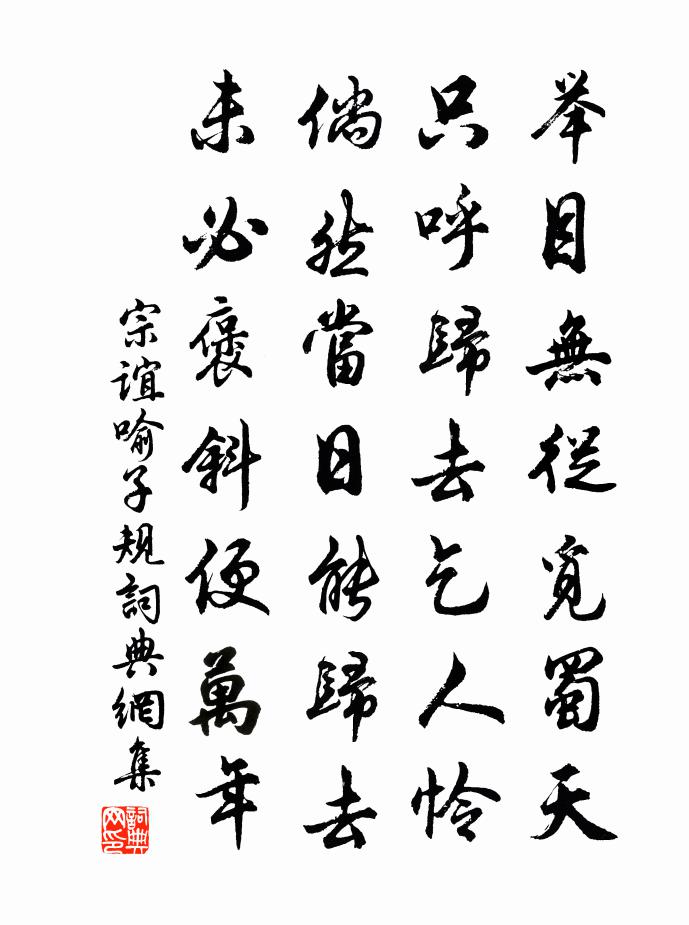 举目無從覓蜀天
只呼歸去乞人怜
倘然當日能歸去
未必褒斜便萬年
宗誼喻子規詞典網集
詞典网印